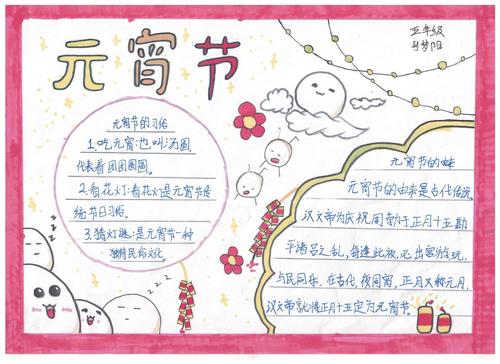 元宵节
五年级
梦阳
元宵节的习俗
1.吃元宵:也叫汤圆,
代表着团团圆圆。
2.看花灯:看花灯是元宵节传
统节日习俗。
3.猜灯谜:是元宵节一种
独特民俗文化
zzz
zzz
元宵节的由来
元宵节的由来是古代传说,
汉文帝为庆祝周勃于正月十五勘
平诸吕之乱,每逢此夜,必出宫游玩,
与民同乐,在古代,夜同宵,正月又称元月,
汉文帝就将正月十五定为元宵节。